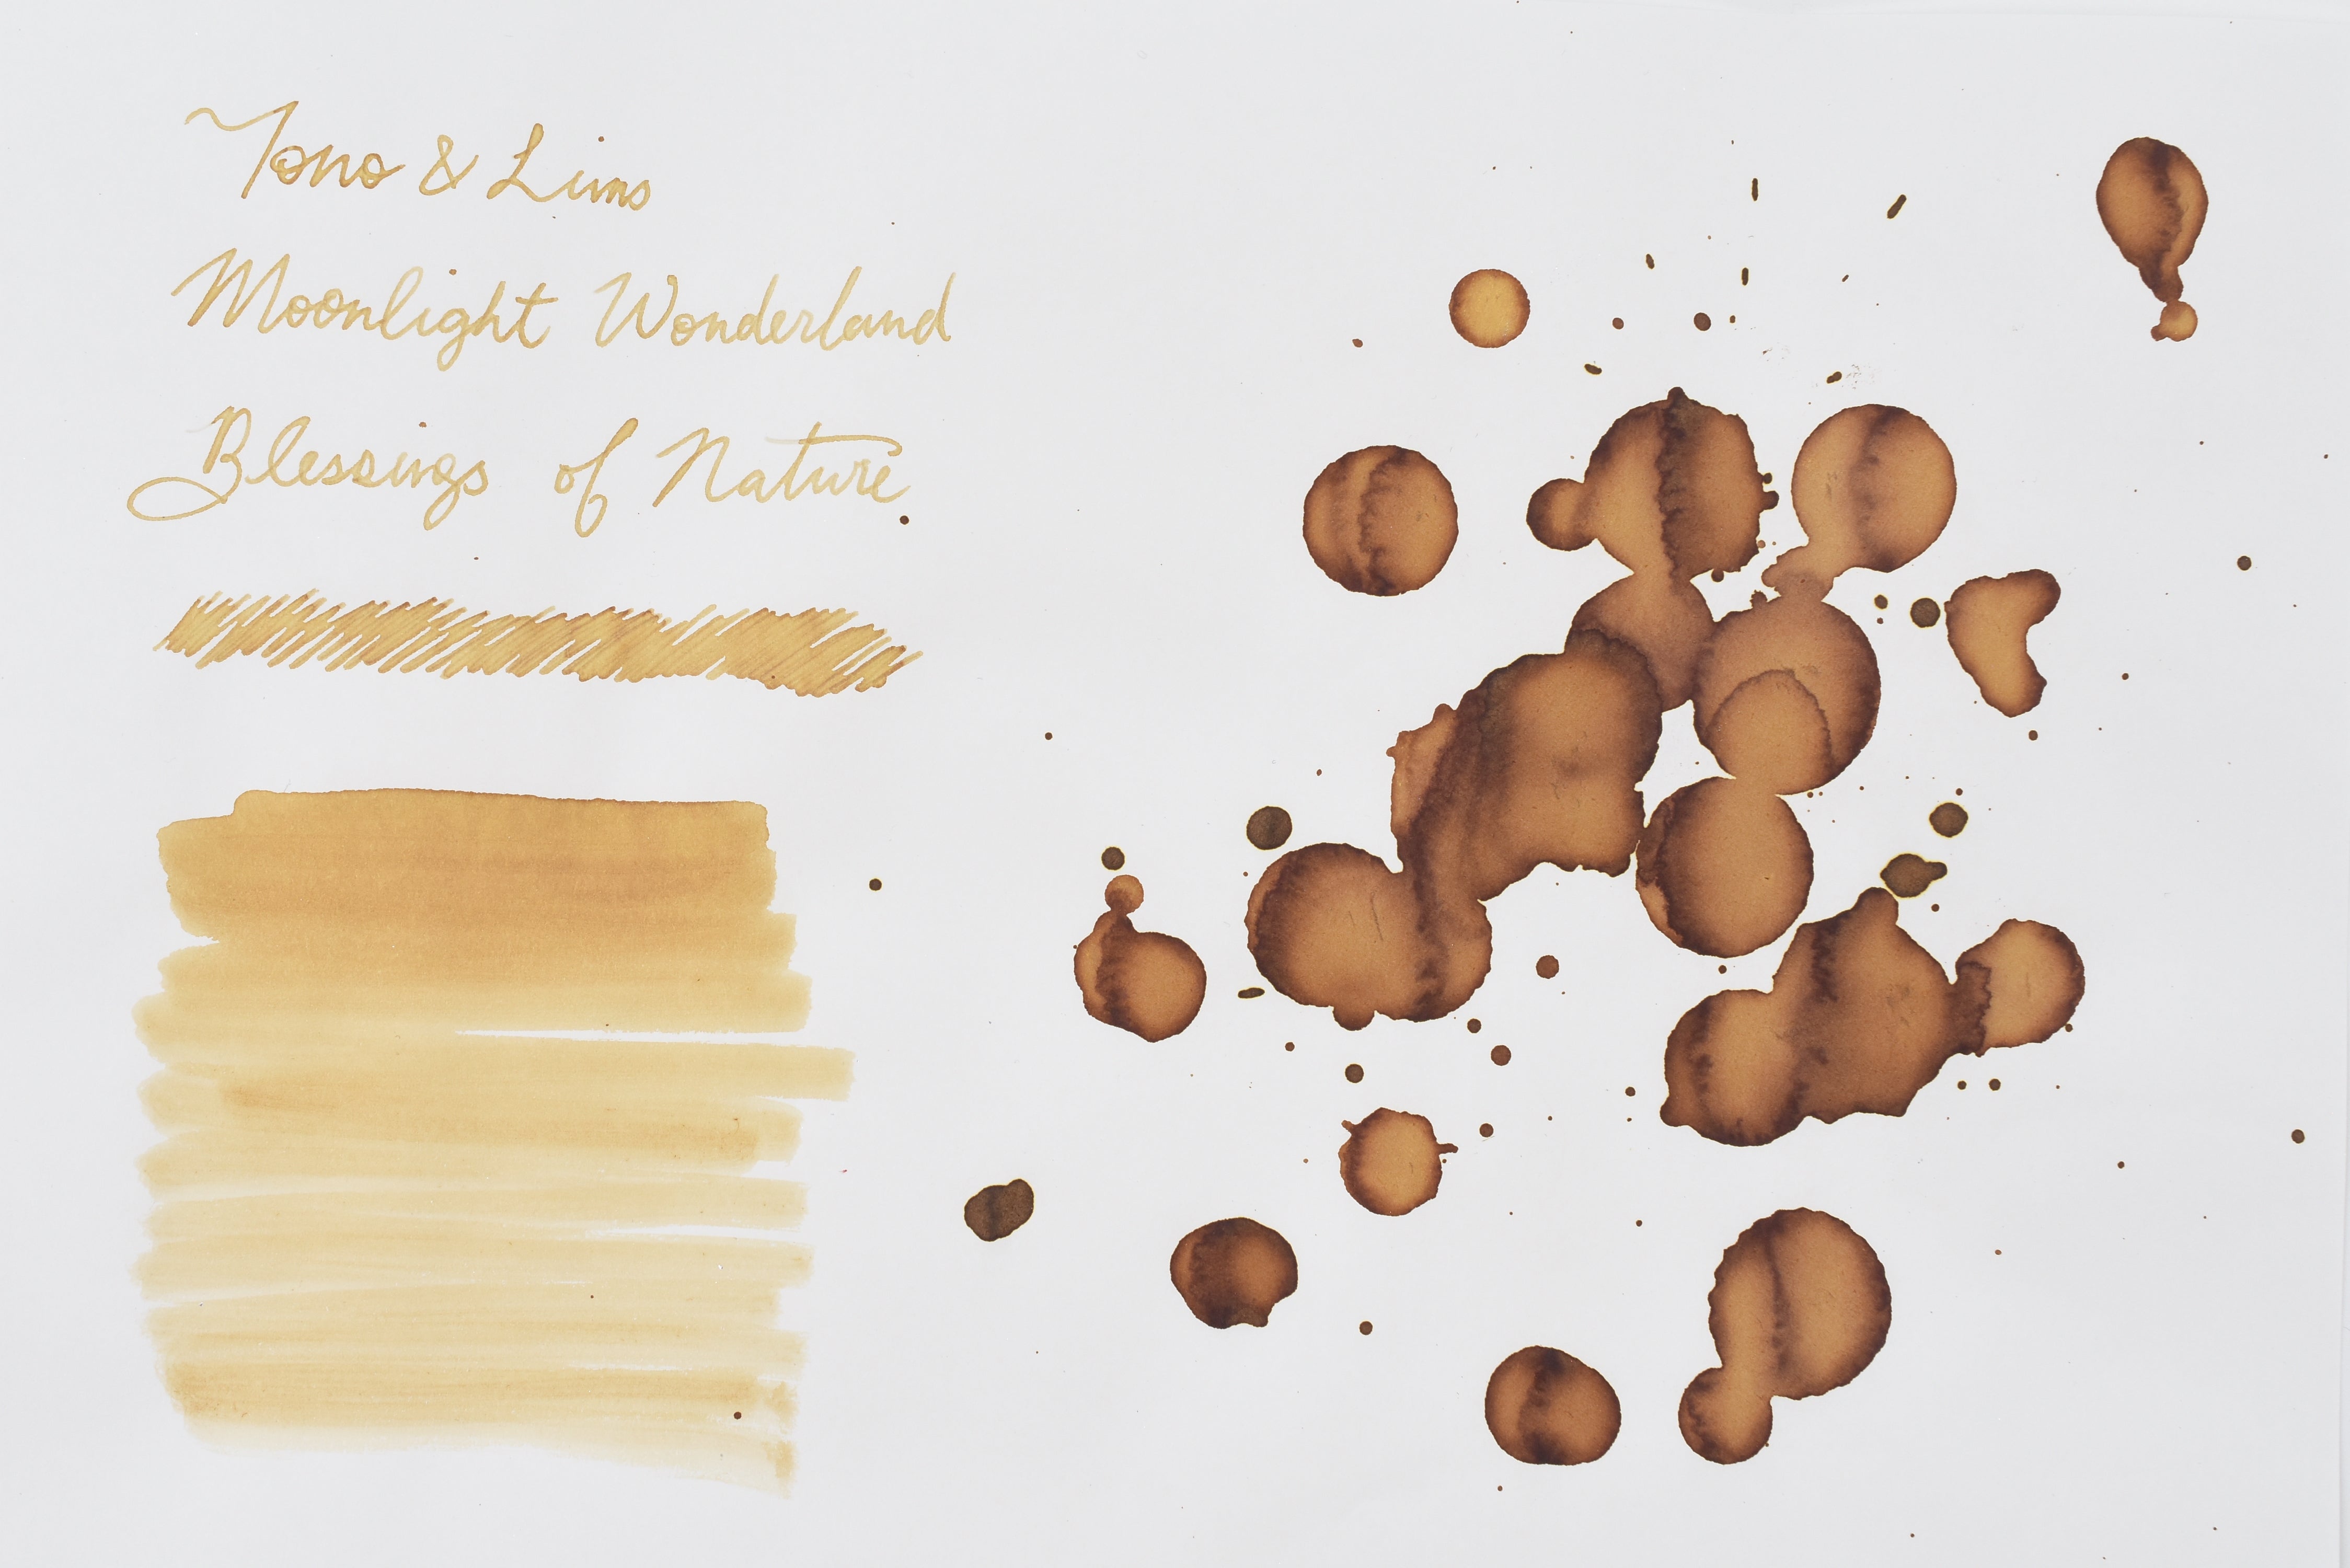 Tono & Lims
Moonlight Wonderland
Blessings of Nature